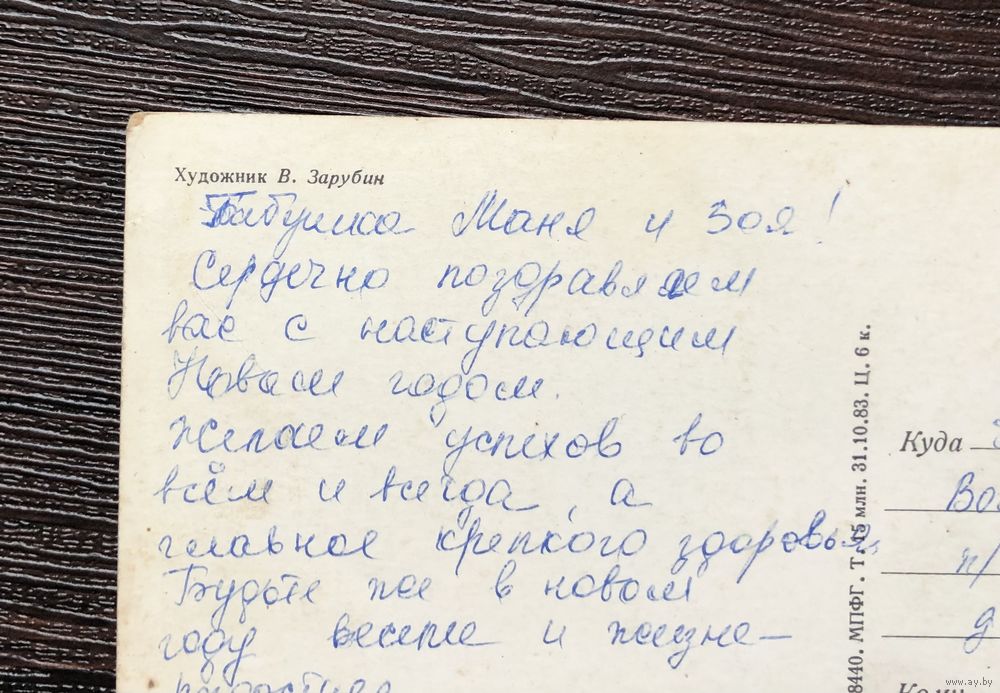 Художник В. Зарубин
Бабушка Маня и Зоя!
Сердечно поздравляем
вас с наступающим
Новым годом.
Желаем успехов во
всём и всегда, а
главное крепкого здоровья.
Будьте же в новом
году веселые и жизне-
радостные
8440. МПФГ. Т. 15 млн. 31.10.83. Ц. 6 к.
Куда
п/
д
Кому
www.ay.by